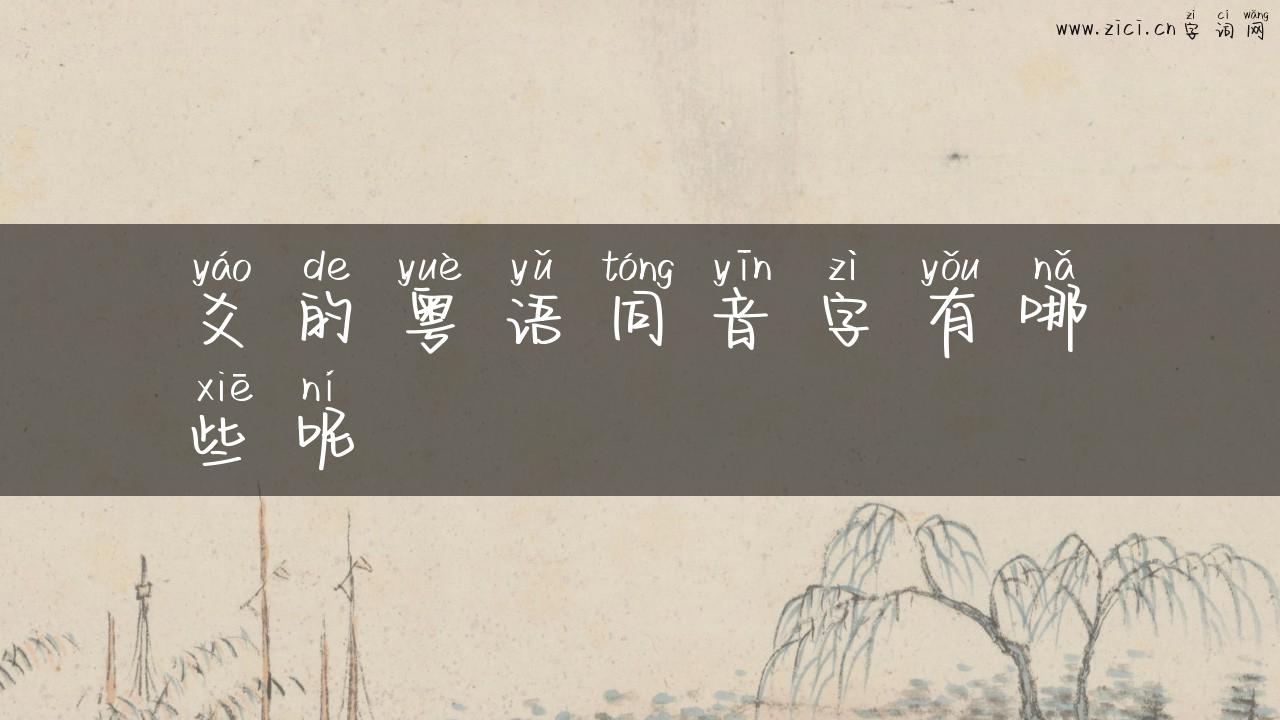 zì cí wǎng
www.zici.cn 字词网
yáo de yuè yǔ tóng yīn zì yǒu nǎ
爻的粤语同音字有哪
xiē ní
些呢